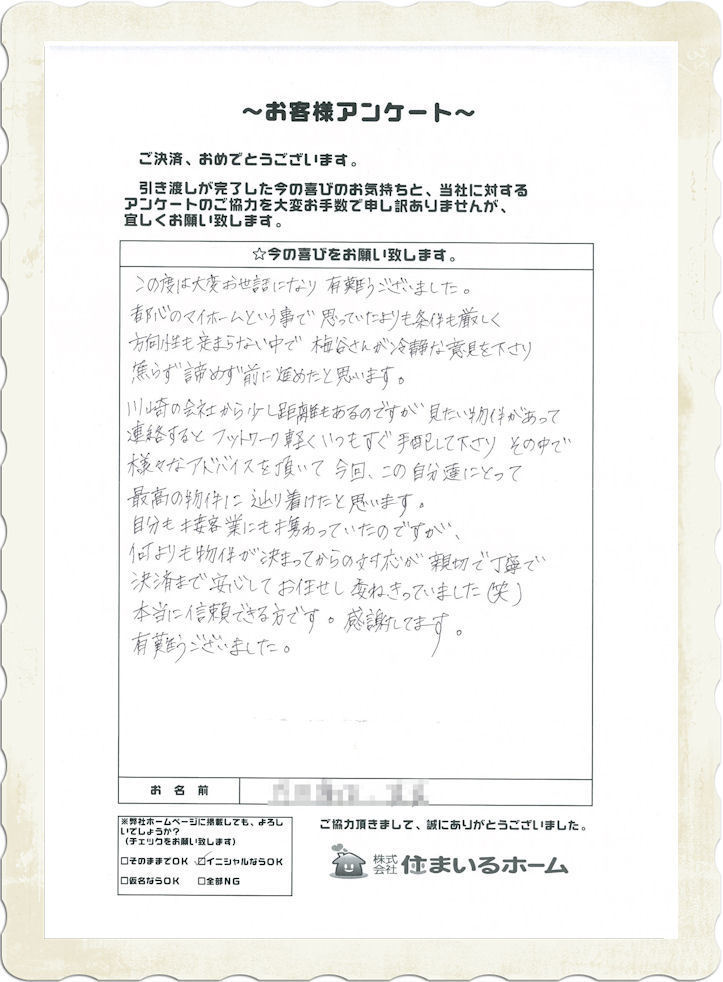 ～お客様アンケート～
ご決済、おめでとうございます。
引き渡しが完了した今の喜びのお気持ちと、当社に対する
アンケートのご協力を大変お手数で申し訳ありませんが、
宜しくお願い致します。
☆今の喜びをお願い致します。
この度は大変お世話になり 有難うございました。
都心のマイホームという事で 思っていたよりも条件も厳しく
方向性も定まらない中で 梅谷さんが冷静な意見を下さり
焦らず諦めず前に進めたと思います。
川崎の会社から少し距離もあるのですが 見たい物件があって
連絡すると フットワーク軽くいつもすぐ手配して下さり その中で
様々なアドバイスを頂いて 今回、この自分達にとって
最高の物件に 辿り着けたと思います。
自分も接客業にも携わっていたのですが、
何よりも物件が決まってからの対応が 親切で丁寧で
決済まで安心して お任せし 委ねきっていました(笑)
本当に信頼できる方です。感謝してます。
有難うございました。
お名前
※弊社ホームページに掲載しても、よろし
いでしょうか？
(チェックをお願い致します)
□そのままでOK ☑イニシャルならOK
□仮名ならOK □全部NG
ご協力頂きまして、誠にありがとうございました。
株式会社 住まいるホーム